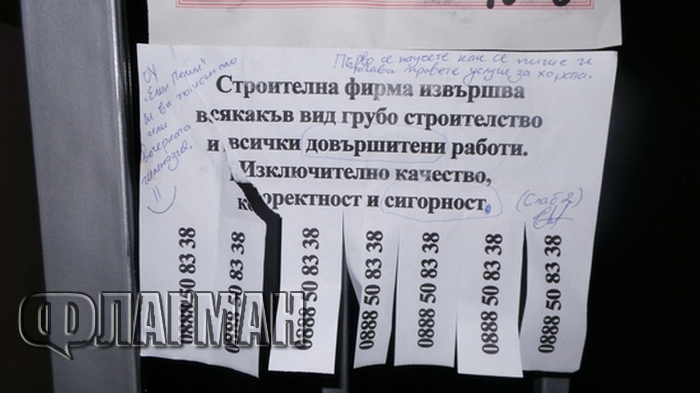 Първо се научете как се пише и
тогава правете услуги за хората.
ОУ
"Елин Пелин"
би ви помогнало
или
вечерната
гимназия.
Строителна фирма извършва
всякакъв вид грубо строителство
и всички довършитени работи.
Изключително качество,
коректност и сигорност.
(Слаб 2)
0888 50 83 38
0888 50 83 38
0888 50 83 38
0888 50 83 38
0888 50 83 38
0888 50 83 38
0888 50 83 38
ФЛАГМАН